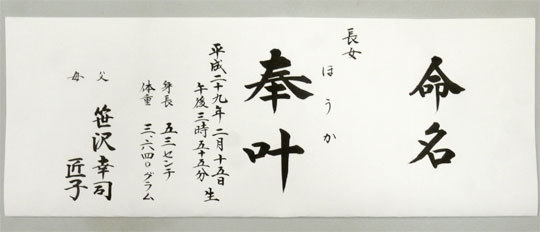 命名
長女
ほうか
奉叶
平成二十九年二月十五日
午後三時五十五分 生
身長 五三センチ
体重 三、六四〇グラム
父 笹沢幸司
母 匠子